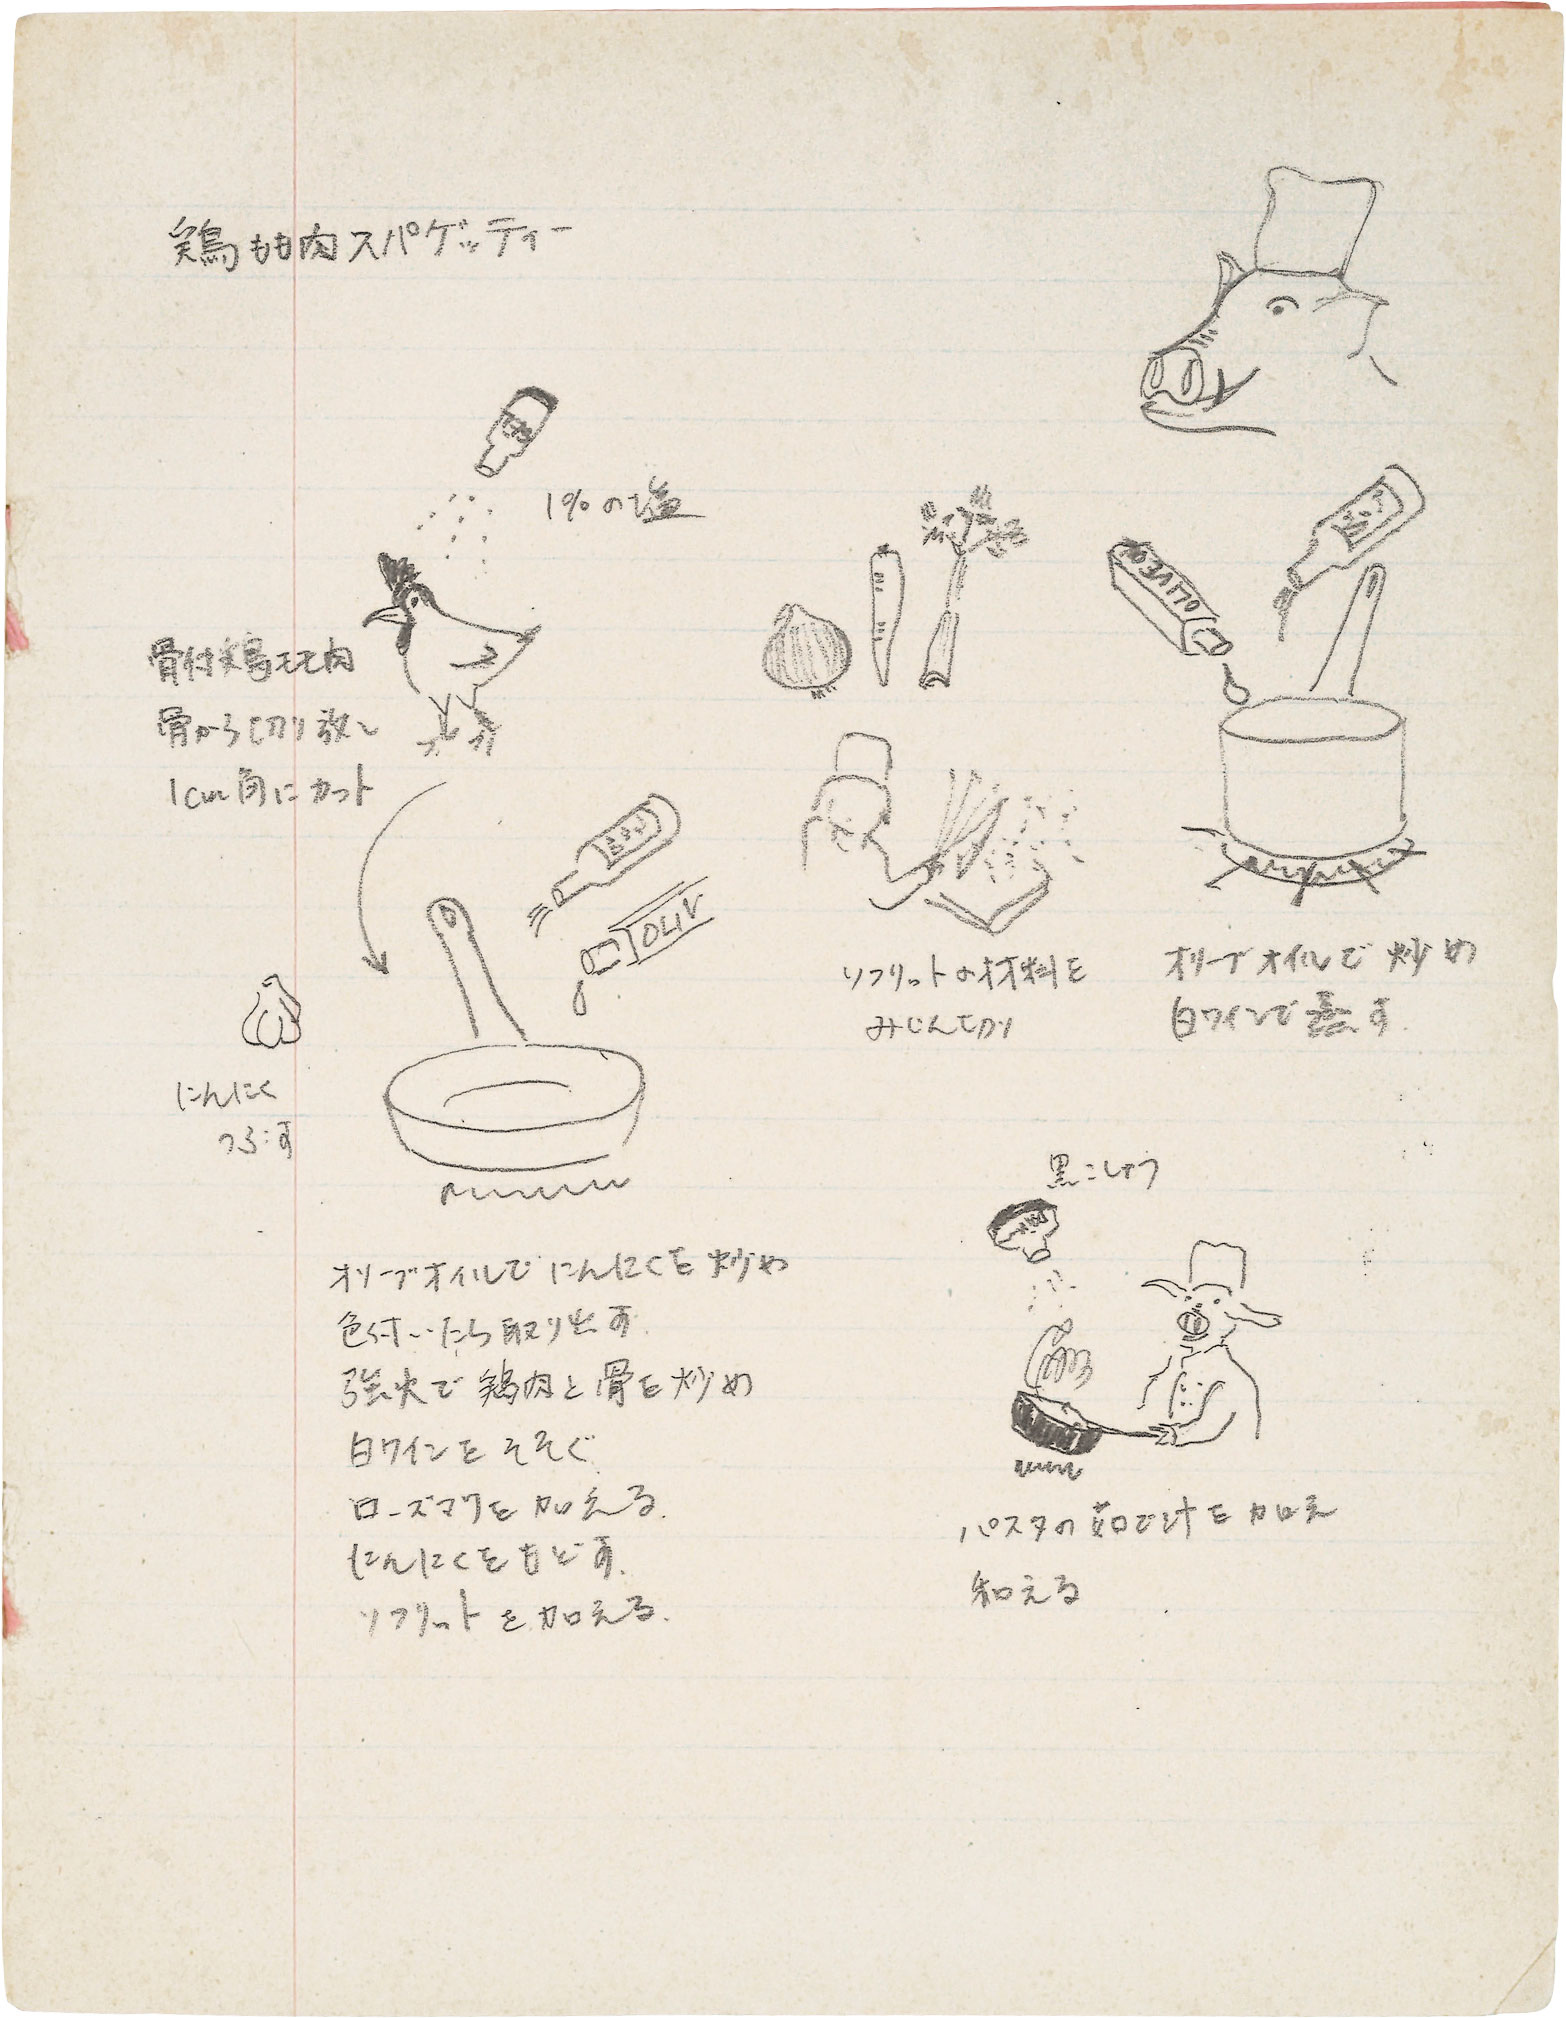 鶏もも肉スパゲッティー
1%の塩
骨付鶏もも肉
骨から切り放し
1cm角にカット
OLIVE
OLIV
にんにく
つぶす
オリーブオイルでにんにくを炒め
色付いたら取り出す.
強火で鶏肉と骨を炒め
白ワインをそそぐ
ローズマリを加える.
にんにくをもどす.
ソフリットを加える.
ソフリットの材料を
みじん切り
オリーブオイルで炒め
白ワインで蒸す.
黒こしょう
パスタの茹で汁を加え
和える